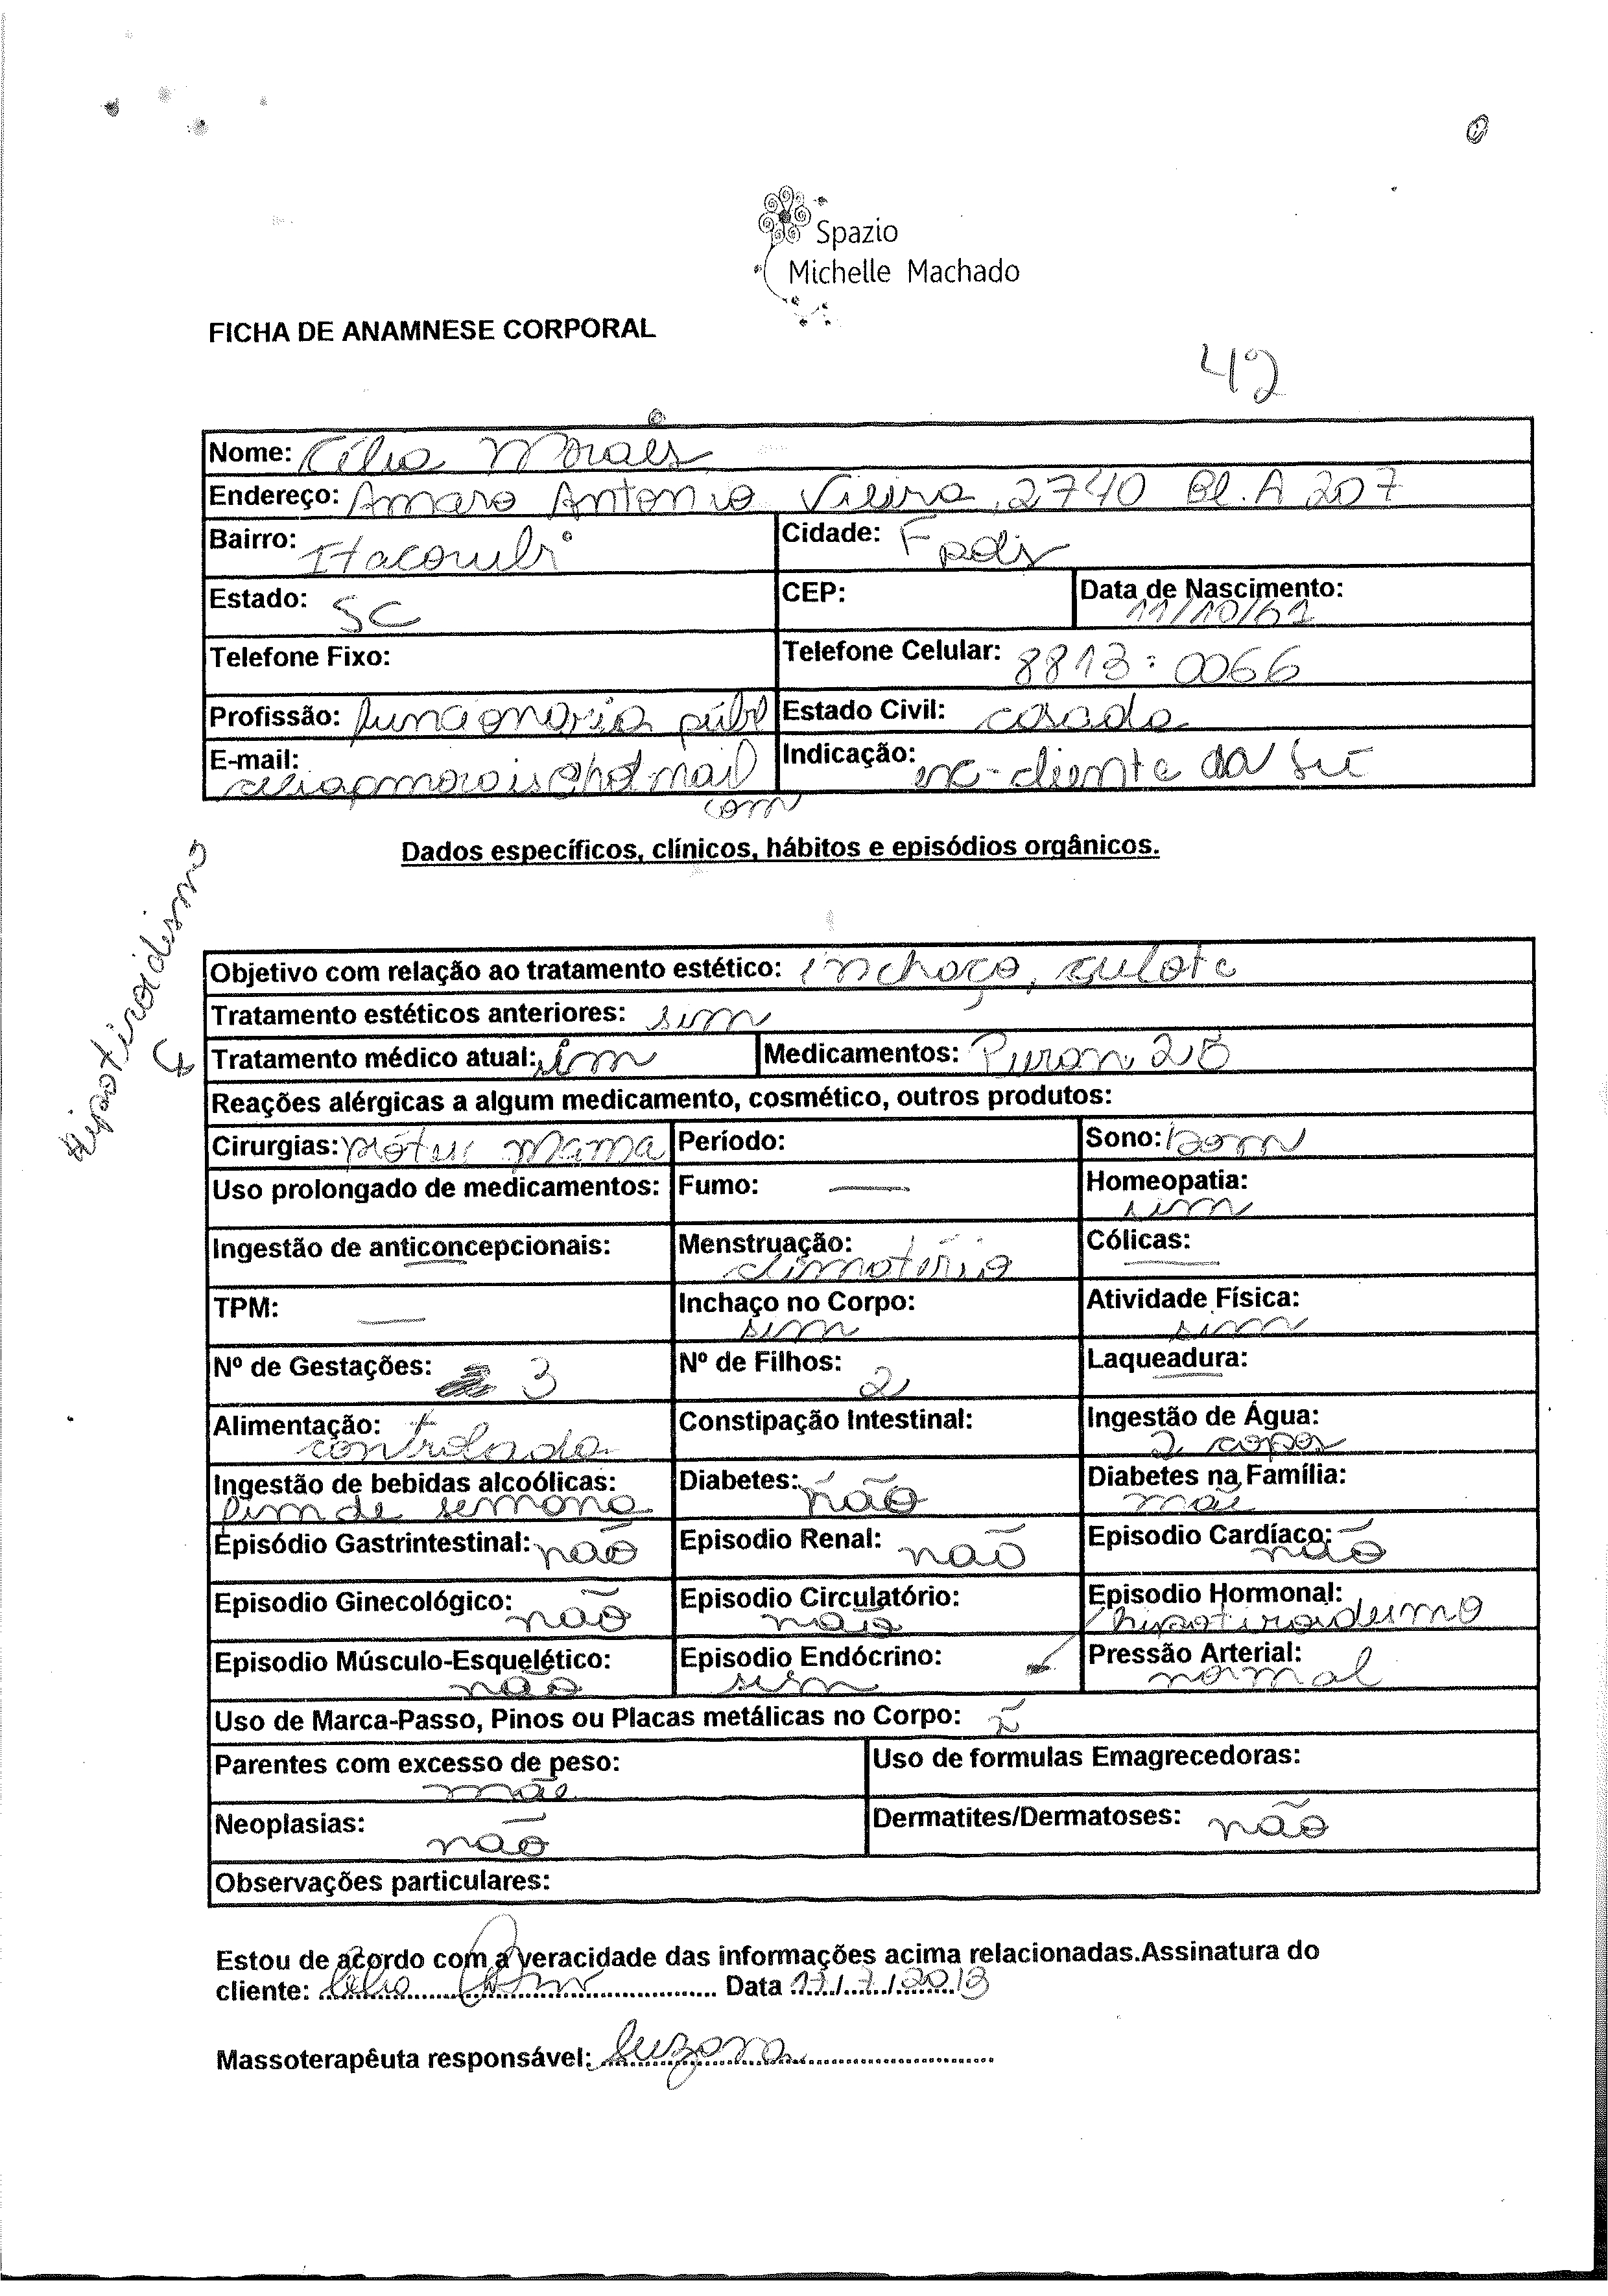 Spazio
Michelle Machado
FICHA DE ANAMNESE CORPORAL
42
Nome: Célia Morais
Endereço: Amaro Antonio Vieira, 2740 Bl. A 207
Bairro: Itacorubi Cidade: Fpolis
Estado: SC CEP: Data de Nascimento: 11/10/61
Telefone Fixo: Telefone Celular: 8813-0066
Profissão: funcionaria públ Estado Civil: casada
E-mail: celiapmorais@hotmail Indicação: ex-cliente da Su
com
Dados específicos, clínicos, hábitos e episódios orgânicos.
hipotiroidismo
Objetivo com relação ao tratamento estético: inchaço, culote
Tratamento estéticos anteriores: sim
Tratamento médico atual: sim Medicamentos: Puran 25
Reações alérgicas a algum medicamento, cosmético, outros produtos:
Cirurgias: prótese mama Período: Sono: bom
Uso prolongado de medicamentos: Fumo: — Homeopatia: sim
Ingestão de anticoncepcionais: Menstruação: climatério Cólicas: —
TPM: — Inchaço no Corpo: sim Atividade Física: sim
Nº de Gestações: 3 Nº de Filhos: 2 Laqueadura:
Alimentação: + controlada Constipação Intestinal: Ingestão de Água: 2 copos
Ingestão de bebidas alcoólicas: fim de semana Diabetes: não Diabetes na Família: mãe
Episódio Gastrintestinal: não Episodio Renal: não Episodio Cardíaco: não
Episodio Ginecológico: não Episodio Circulatório: não Episodio Hormonal: hipotiroidismo
Episodio Músculo-Esquelético: não Episodio Endócrino: sim Pressão Arterial: normal
Uso de Marca-Passo, Pinos ou Placas metálicas no Corpo:
Parentes com excesso de peso: mãe Uso de formulas Emagrecedoras:
Neoplasias: não Dermatites/Dermatoses: não
Observações particulares:
Estou de acordo com a veracidade das informações acima relacionadas.Assinatura do
cliente: Célia Data 17/7/2013
Massoterapêuta responsável: Suzana